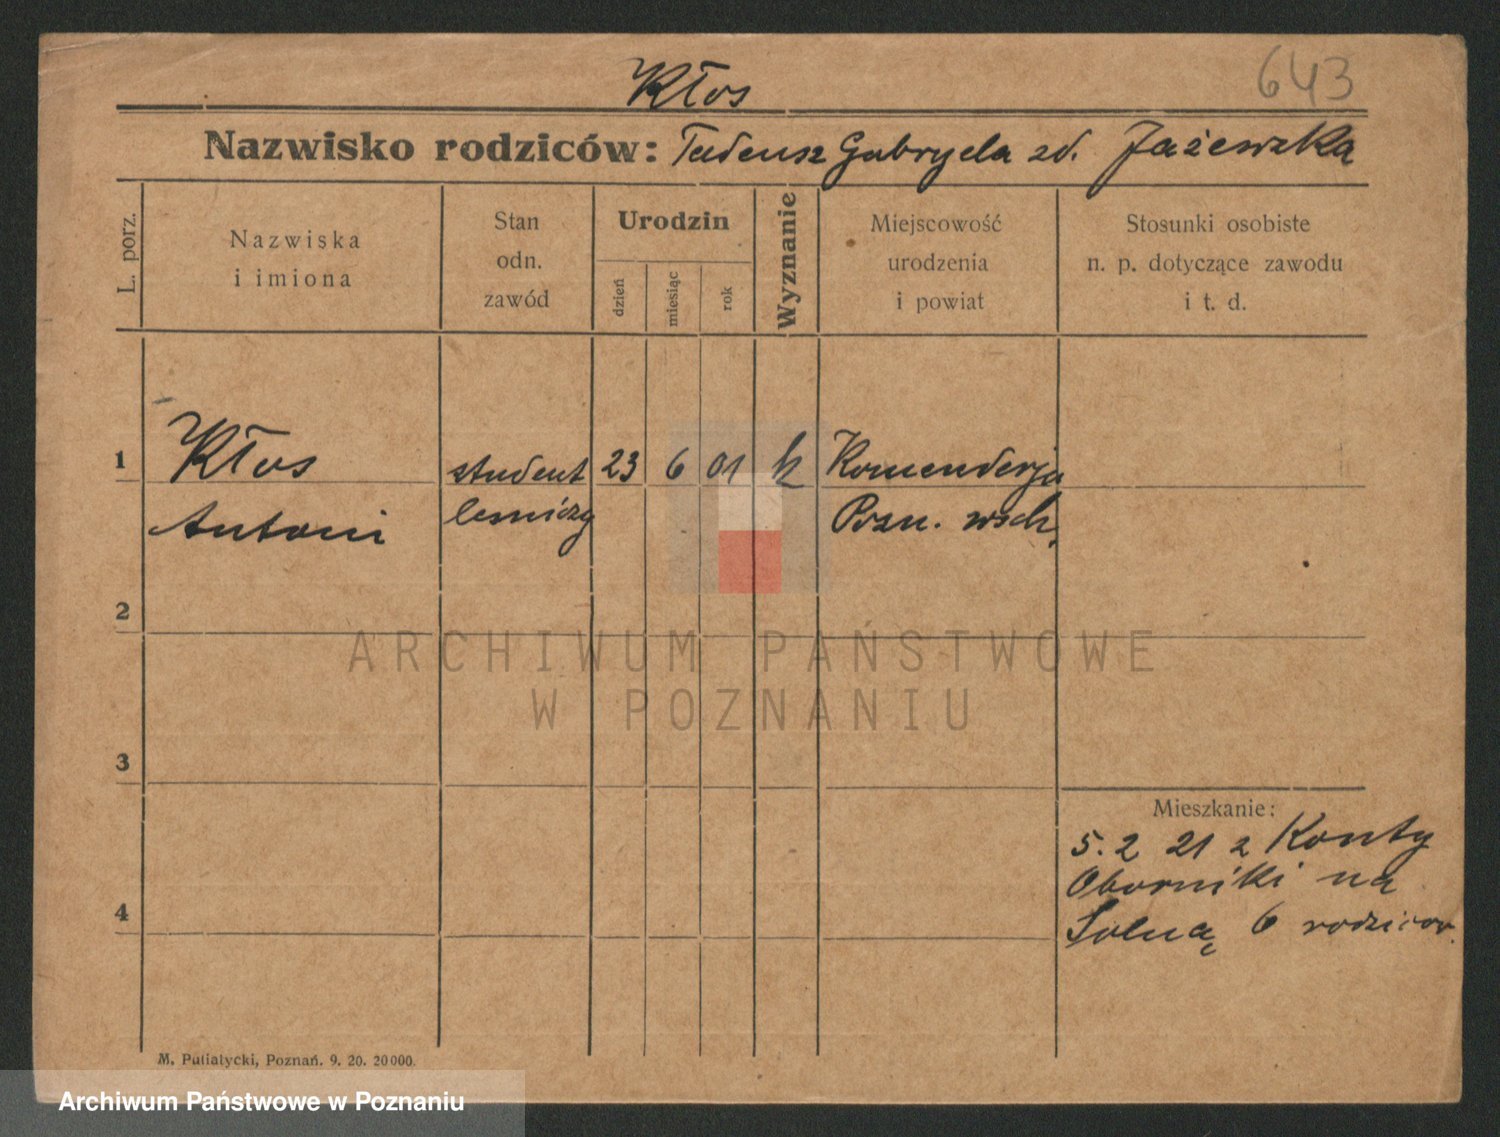 643
Kłos
Nazwisko rodziców: Tadeusz Gabryela zd. Jażewska
L. porz.
Nazwiska
i imiona
Stan
odn.
zawód
Urodzin
dzień
miesiąc
rok
Wyznanie
Miejscowość
urodzenia
i powiat
Stosunki osobiste
n. p. dotyczące zawodu
i t. d.
1 Kłos student 23 6 01 k Komenderja
Antoni leśniczy Pozn. wsch.
2
ARCHIWUM PAŃSTWOWE
W POZNANIU
3
Mieszkanie:
5. 2 21 z Konty
Oborniki na
4
Solną 6 rodzicow.
M. Putiatycki, Poznań. 9. 20. 20000.
Archiwum Państwowe w Poznaniu